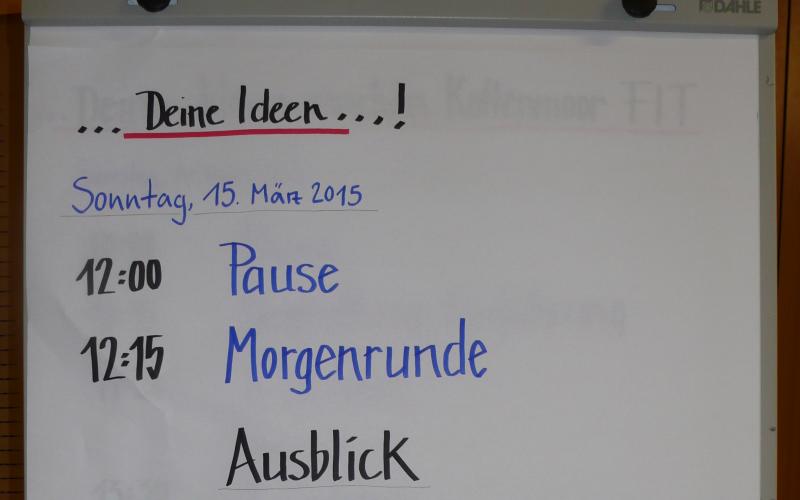 DAHLE
... Deine Ideen ...!
Sonntag, 15. März 2015
12:00 Pause
12:15 Morgenrunde
Ausblick